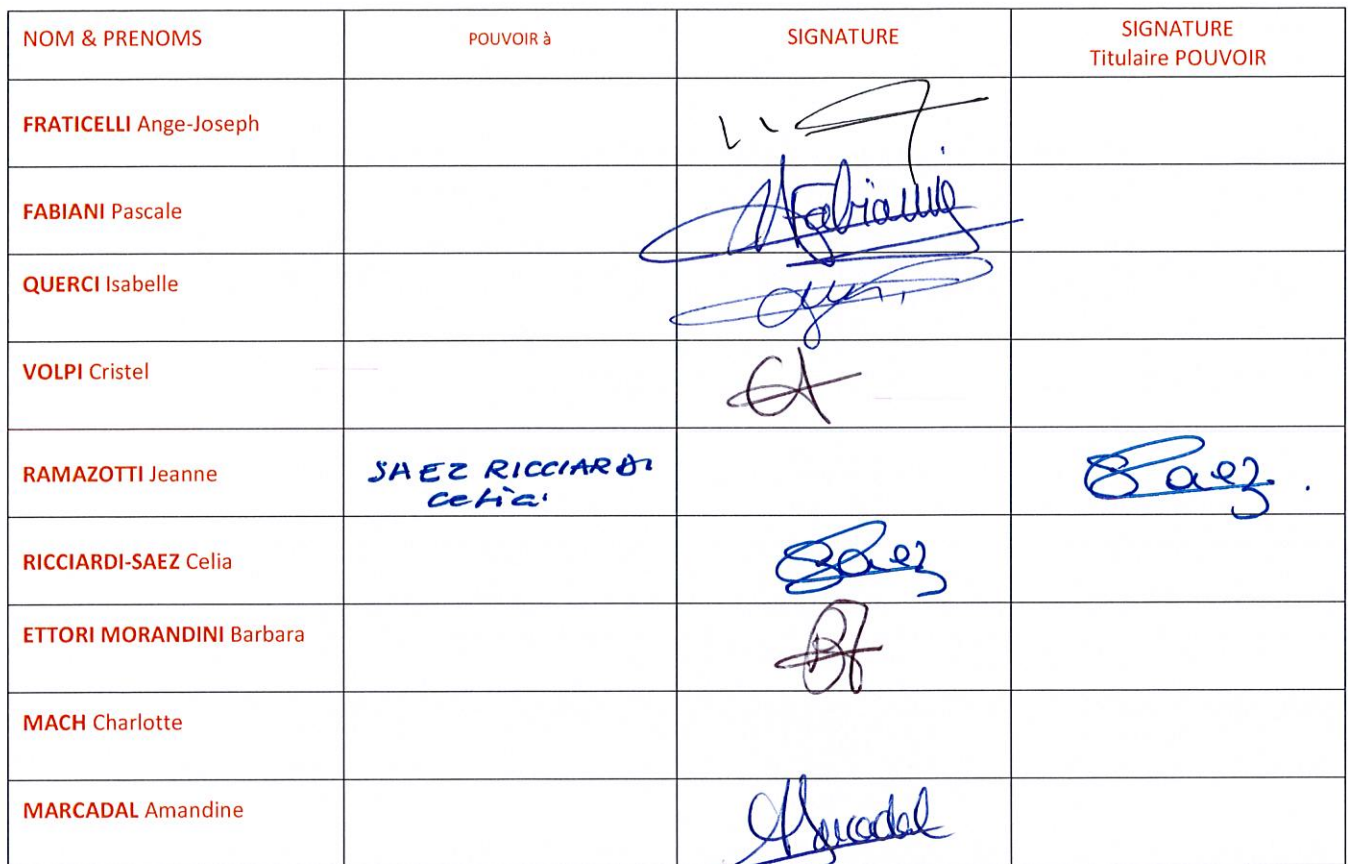 NOM & PRENOMS
POUVOIR à
SIGNATURE
SIGNATURE
Titulaire POUVOIR
FRATICELLI Ange-Joseph
FABIANI Pascale
Fabiani
QUERCI Isabelle
VOLPI Cristel
RAMAZOTTI Jeanne
SAEZ RICCIARDI
Celia
Saez
RICCIARDI-SAEZ Celia
Saez
ETTORI MORANDINI Barbara
MACH Charlotte
MARCADAL Amandine